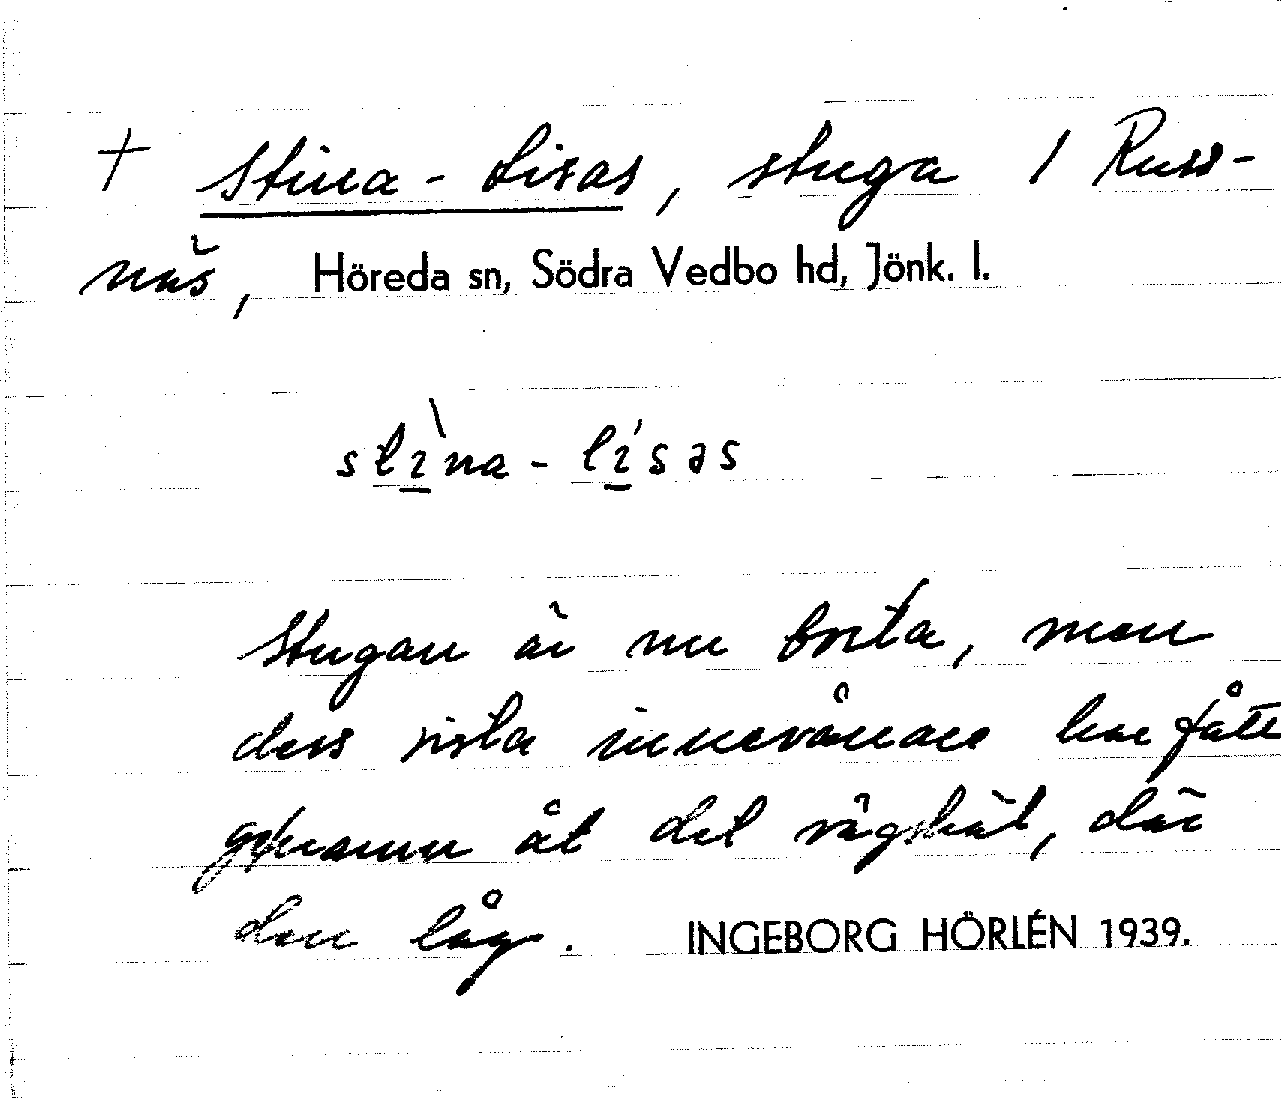 † Stina-Lisas, stuga / Russ-
näs, Höreda sn, Södra Vedbo hd, Jönk. l.
stìna-lísəs
Stugan är nu borta, men
dess sista innevånare har fått
ge namn åt det vägskäl, där
den låg. INGEBORG HÖRLÉN 1939.